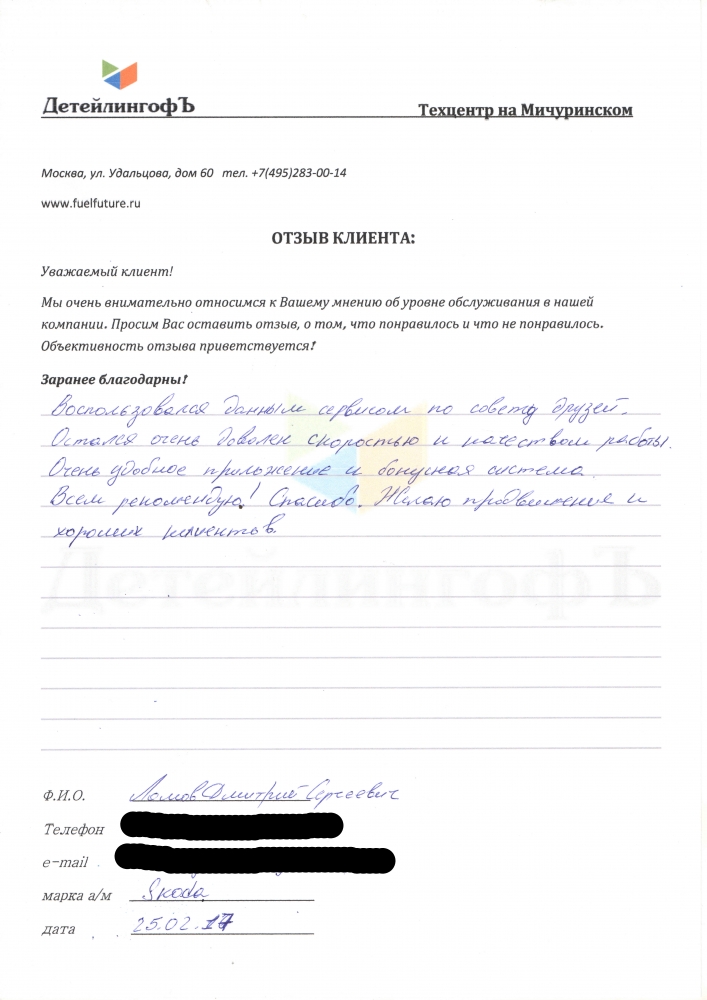 ДетейлингофЪ Техцентр на Мичуринском
Москва, ул. Удальцова, дом 60 тел. +7(495)283-00-14
www.fuelfuture.ru
ОТЗЫВ КЛИЕНТА:
Уважаемый клиент!
Мы очень внимательно относимся к Вашему мнению об уровне обслуживания в нашей
компании. Просим Вас оставить отзыв, о том, что понравилось и что не понравилось.
Объективность отзыва приветствуется!
Заранее благодарны!
Воспользовался данным сервисом по совету друзей.
Остался очень доволен скоростью и качеством работы.
Очень удобное приложение и бонусная система.
Всем рекомендую! Спасибо. Желаю продвижения и
хороших клиентов.
ДетейлингофЪ
Ф.И.О. Ломов Дмитрий Сергеевич
Телефон
e-mail
марка а/м Skoda
дата 25.02.17